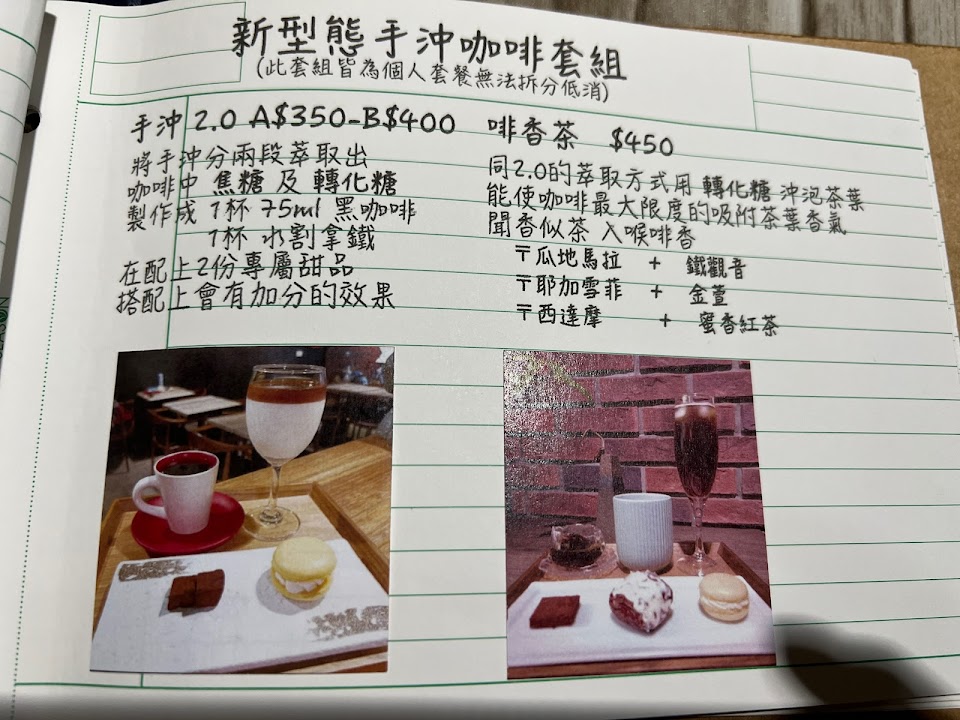 新型態手沖咖啡套組
(此套組皆為個人套餐無法拆分低消)
手沖 2.0 A$350-B$400
將手沖分兩段萃取出
咖啡中 焦糖 及 轉化糖
製作成 1杯 75ml 黑咖啡
1杯 水割拿鐵
在配上2份專屬甜品
搭配上會有加分的效果
啡香茶 $450
同2.0的萃取方式用 轉化糖 沖泡茶葉
能使咖啡最大限度的吸附茶葉香氣
聞香似茶 入喉啡香
〒瓜地馬拉 + 鐵觀音
〒耶加雪菲 + 金萱
〒西達摩 + 蜜香紅茶